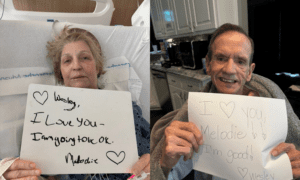 Wesley,
I Love You -
I am going to be OK.
Melodie
I ♡ You
Melodie
I am good!
Wesley